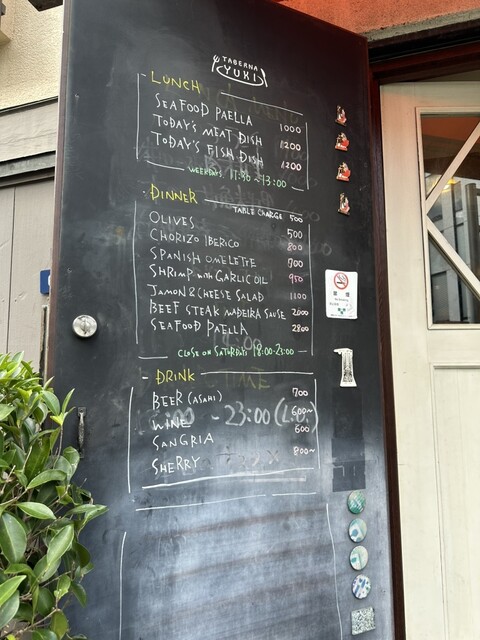 TABERNA
YUKI
LUNCH
SEAFOOD PAELLA 1000
TODAY'S MEAT DISH 1200
TODAY'S FISH DISH 1200
WEEKDAYS 11:30-13:00
DINNER
TABLE CHARGE 500
OLIVES 500
CHORIZO IBERICO 800
SPANISH OMELETTE 700
SHRIMP with GARLIC OIL 950
JAMON & CHEESE SALAD 1100
BEEF STEAK MADEIRA SAUSE 2600
SEAFOOD PAELLA 2800
CLOSE ON SATURDAY 18:00-23:00
DRINK
BEER (ASAHI) 700
WINE 600~
-23:00 (L.O.)
SANGRIA 600
SHERRY 800~